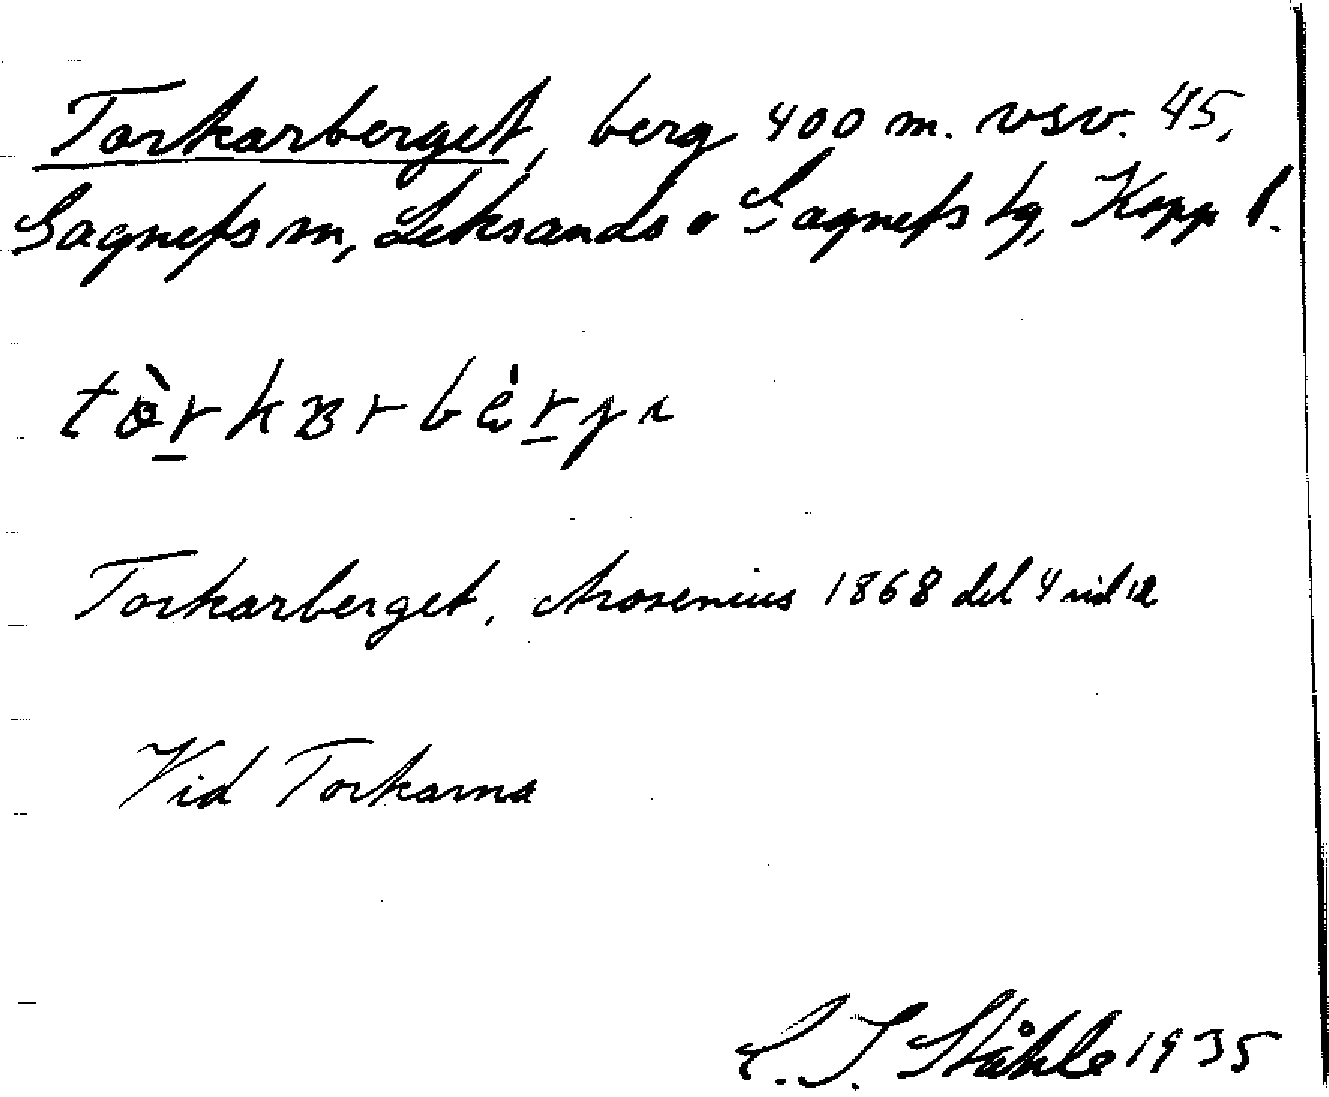 Torkarberget, berg 400 m. vsv. 45,
Gagnefs sn, Leksands o Gagnefs tg, Kopp l.
tòrkʙrbèrgɩ
Torkarberget, Arosenius 1868 del 4 sid 12
Vid Torkarna
C. I. Ståhle 1935